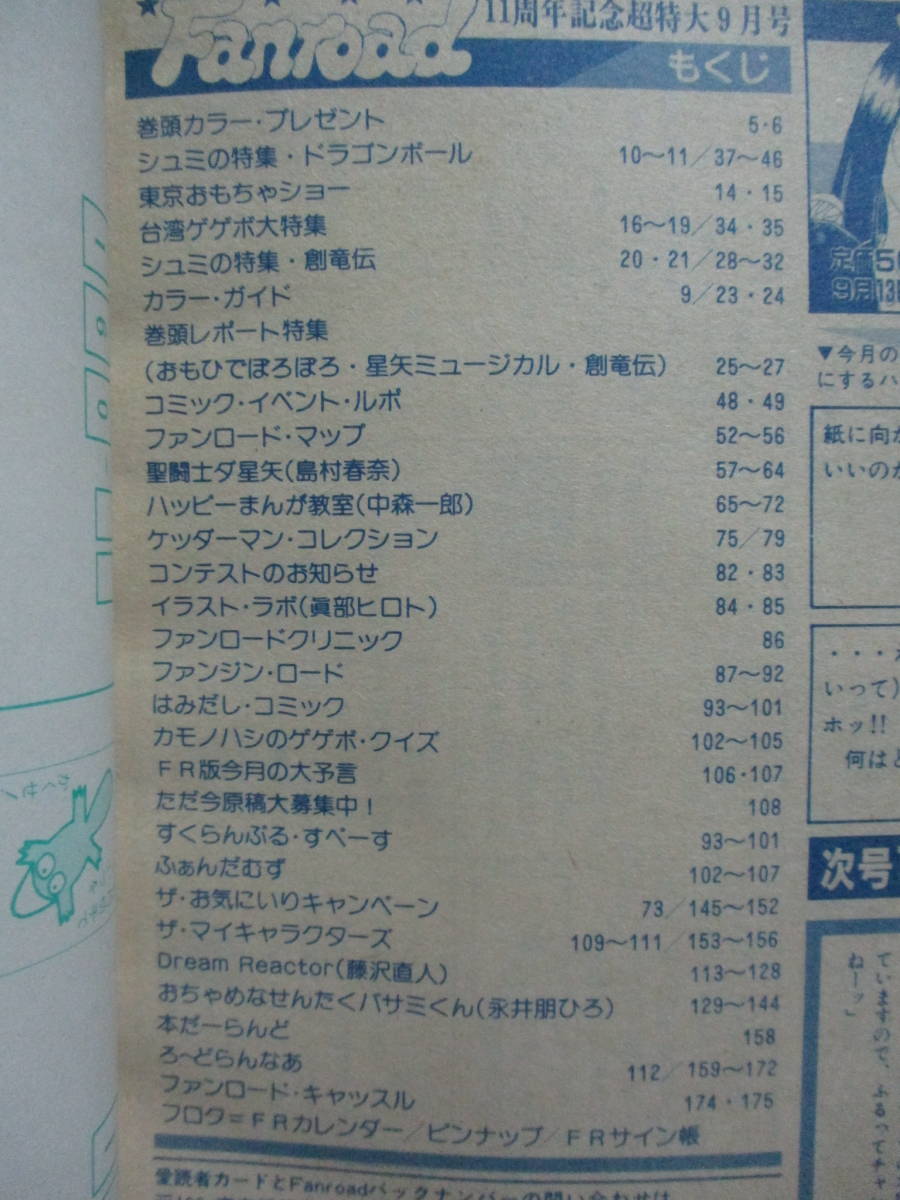 Fanroad
11周年記念超特大9月号
もくじ
巻頭カラー・プレゼント 5・6
シュミの特集・ドラゴンボール 10〜11/37〜46
東京おもちゃショー 14・15
台湾ゲゲボ大特集 16〜19/34・35
シュミの特集・創竜伝 20・21/28〜32
カラー・ガイド 9/23・24
巻頭レポート特集
(おもひでぽろぽろ・星矢ミュージカル・創竜伝) 25〜27
コミック・イベント・ルポ 48・49
ファンロード・マップ 52〜56
聖闘士ダ星矢(島村春奈) 57〜64
ハッピーまんが教室(中森一郎) 65〜72
ケッダーマン・コレクション 75/79
コンテストのお知らせ 82・83
イラスト・ラボ(眞部ヒロト) 84・85
ファンロードクリニック 86
ファンジン・ロード 87〜92
はみだし・コミック 93〜101
カモノハシのゲゲボ・クイズ 102〜105
FR版今月の大予言 106・107
ただ今原稿大募集中! 108
すくらんぶる・すぺーす 93〜101
ふぁんだむず 102〜107
ザ・お気にいりキャンペーン 73/145〜152
ザ・マイキャラクターズ 109〜111/153〜156
Dream Reactor(藤沢直人) 113〜128
おちゃめなせんたくバサミくん(永井朋ひろ) 129〜144
本だーらんど 158
ろ〜どらんなあ 112/159〜172
ファンロード・キャッスル 174・175
フロク=FRカレンダー/ピンナップ/FRサイン帳
愛読者カードとFanroadバックナンバーの問い合わせは
定価5
9月13
▼今月の
にするハ
紙に向か
いいのか
いって)
ホッ!!
何はと
次号
ていますので、ふるってチャ
ねーッ」